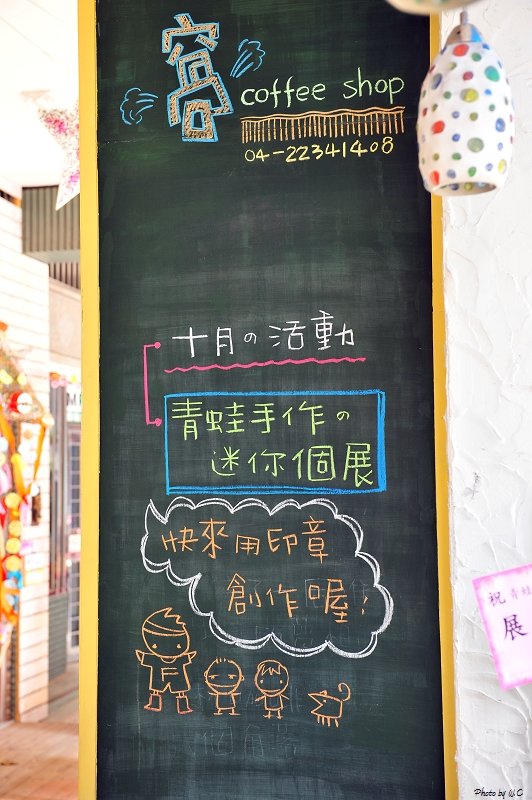 窩
coffee shop
04-22341408
十月の活動
青蛙手作の
迷你個展
快來用印章
創作喔！
祝 青蛙
展
Photo by W.C